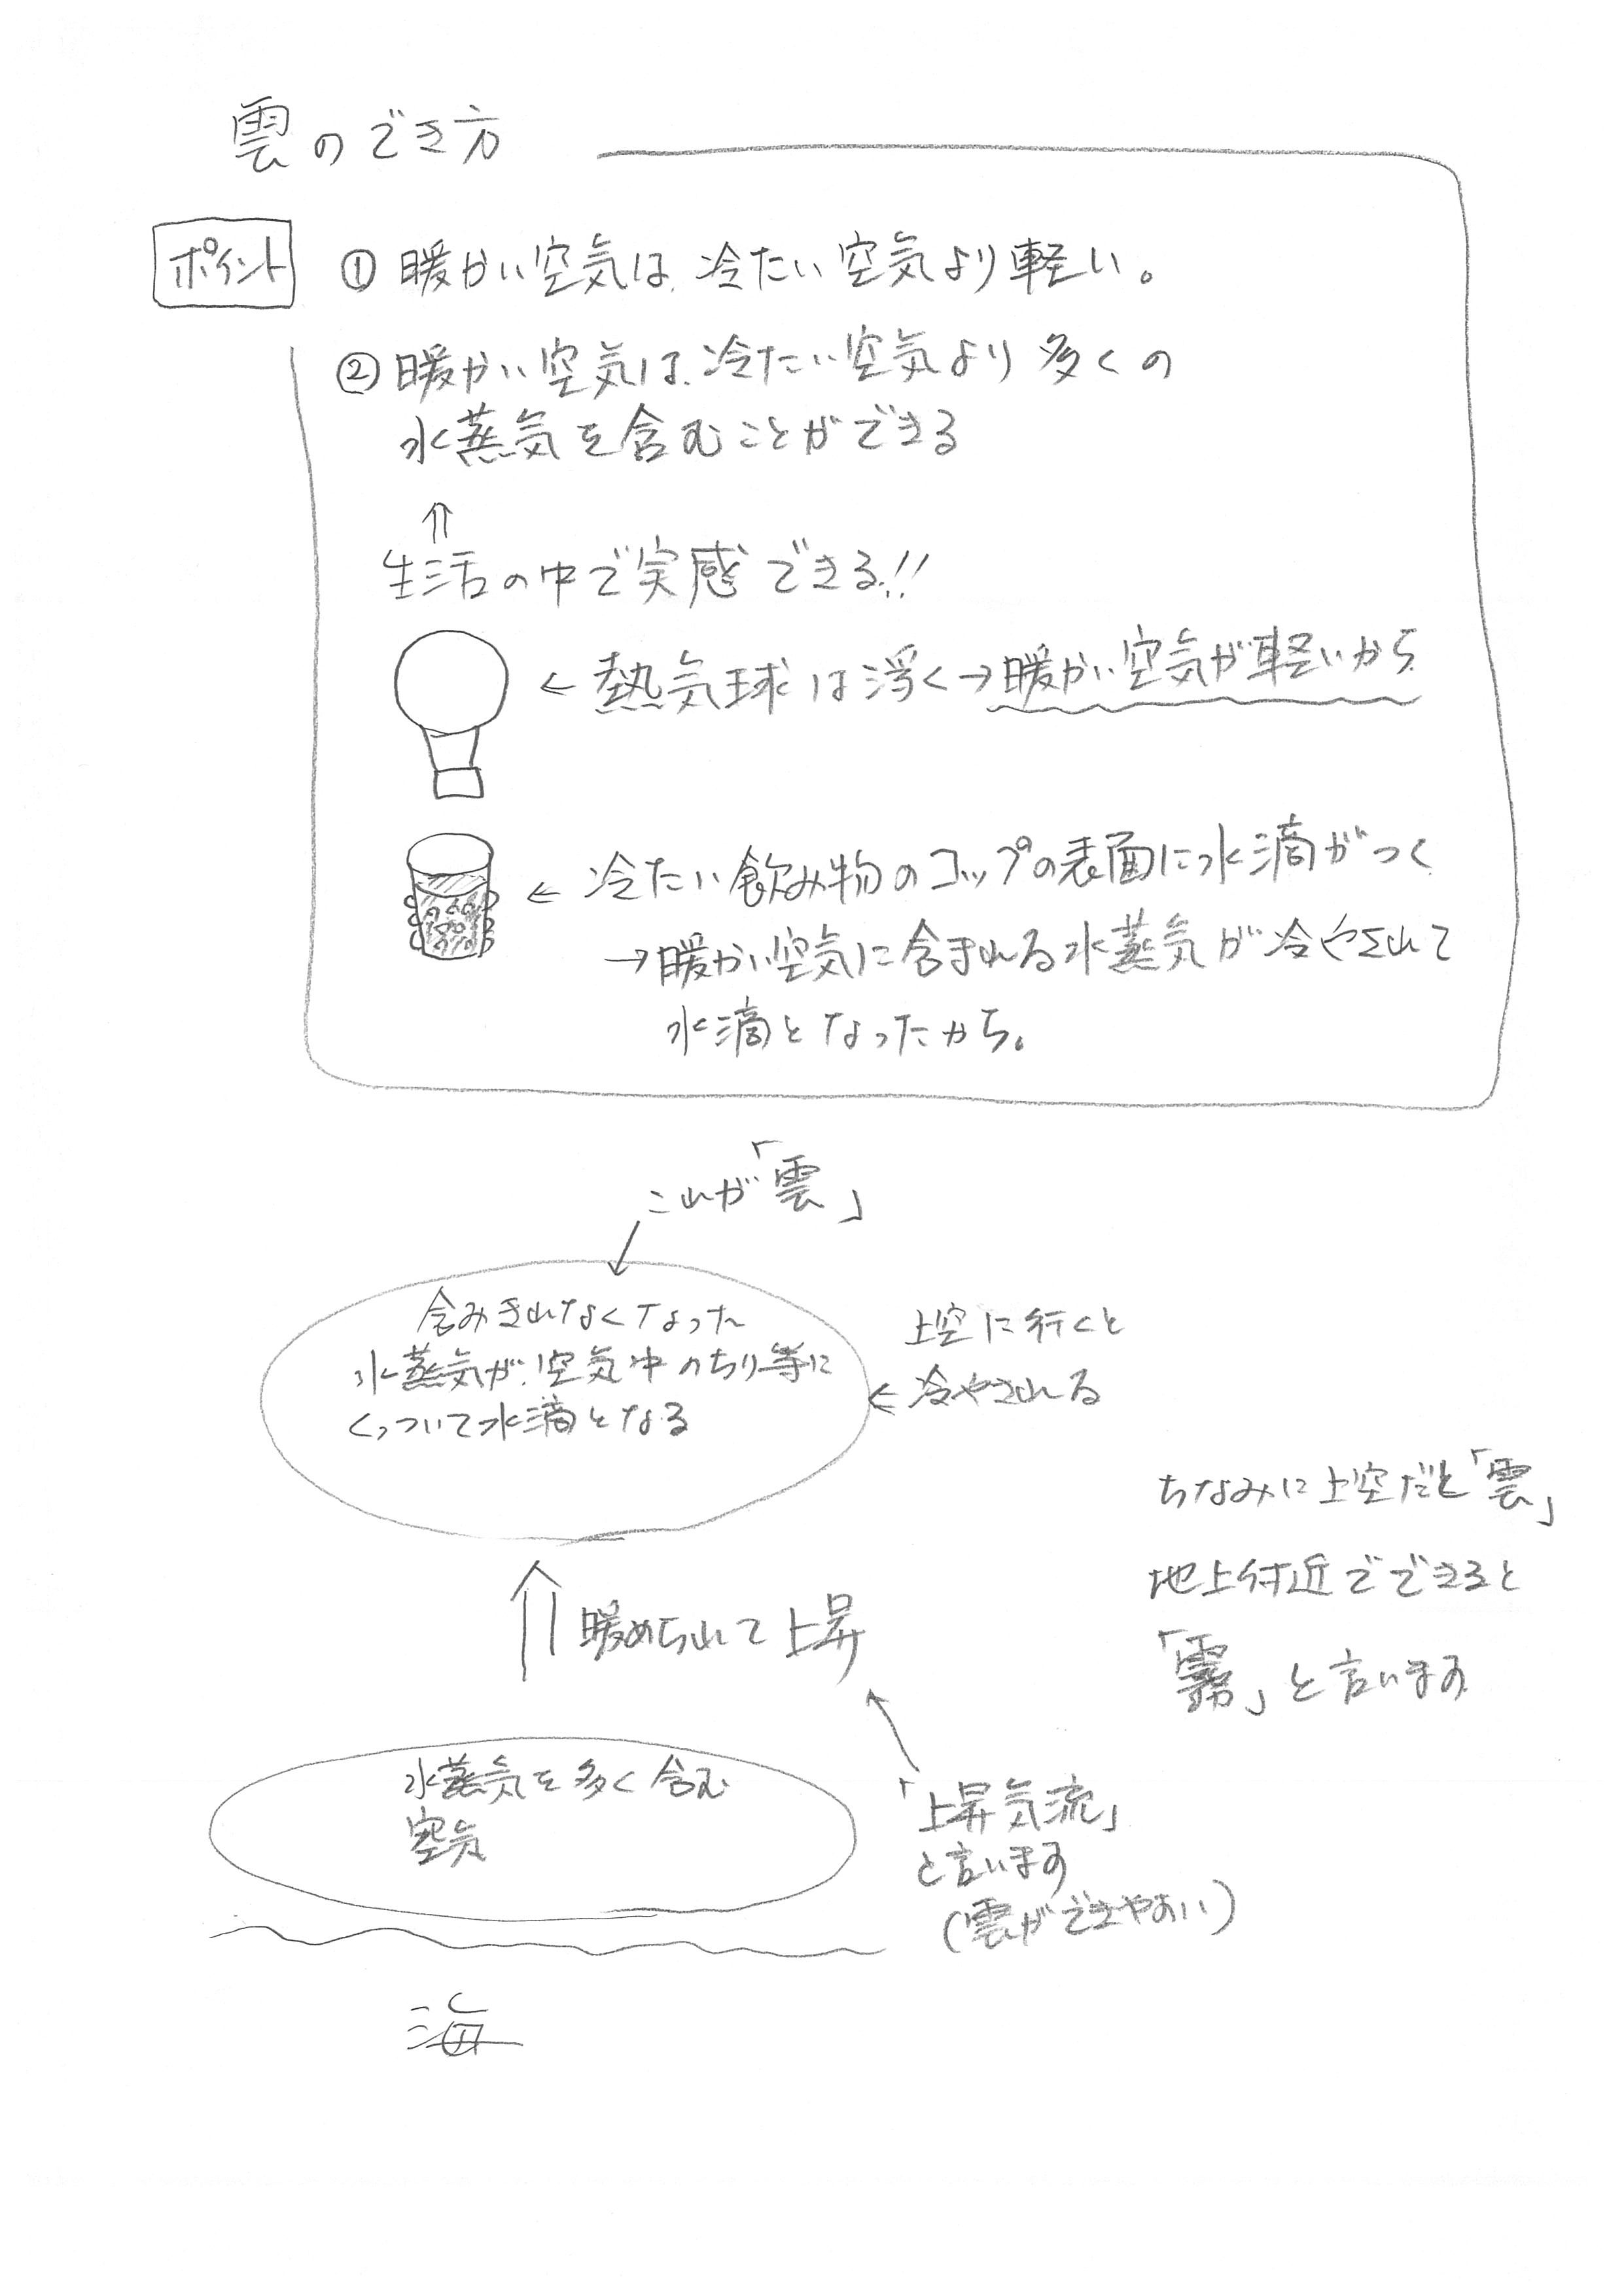 雲のでき方
ポイント
① 暖かい空気は、冷たい空気より軽い。
② 暖かい空気は、冷たい空気より多くの
水蒸気を含むことができる
⇑
生活の中で実感できる!!
← 熱気球は浮く→暖かい空気が軽いから
← 冷たい飲み物のコップの表面に水滴がつく
→暖かい空気に含まれる水蒸気が冷やされて
水滴となったから。
これが「雲」
含みきれなくなった
水蒸気が、空気中のちり等に
くっついて水滴となる
上空に行くと
← 冷やされる
ちなみに上空だと「雲」
地上付近でできると
「霧」と言います
暖められて上昇
水蒸気を多く含む
空気
「上昇気流」
と言います
(雲ができやすい)
海